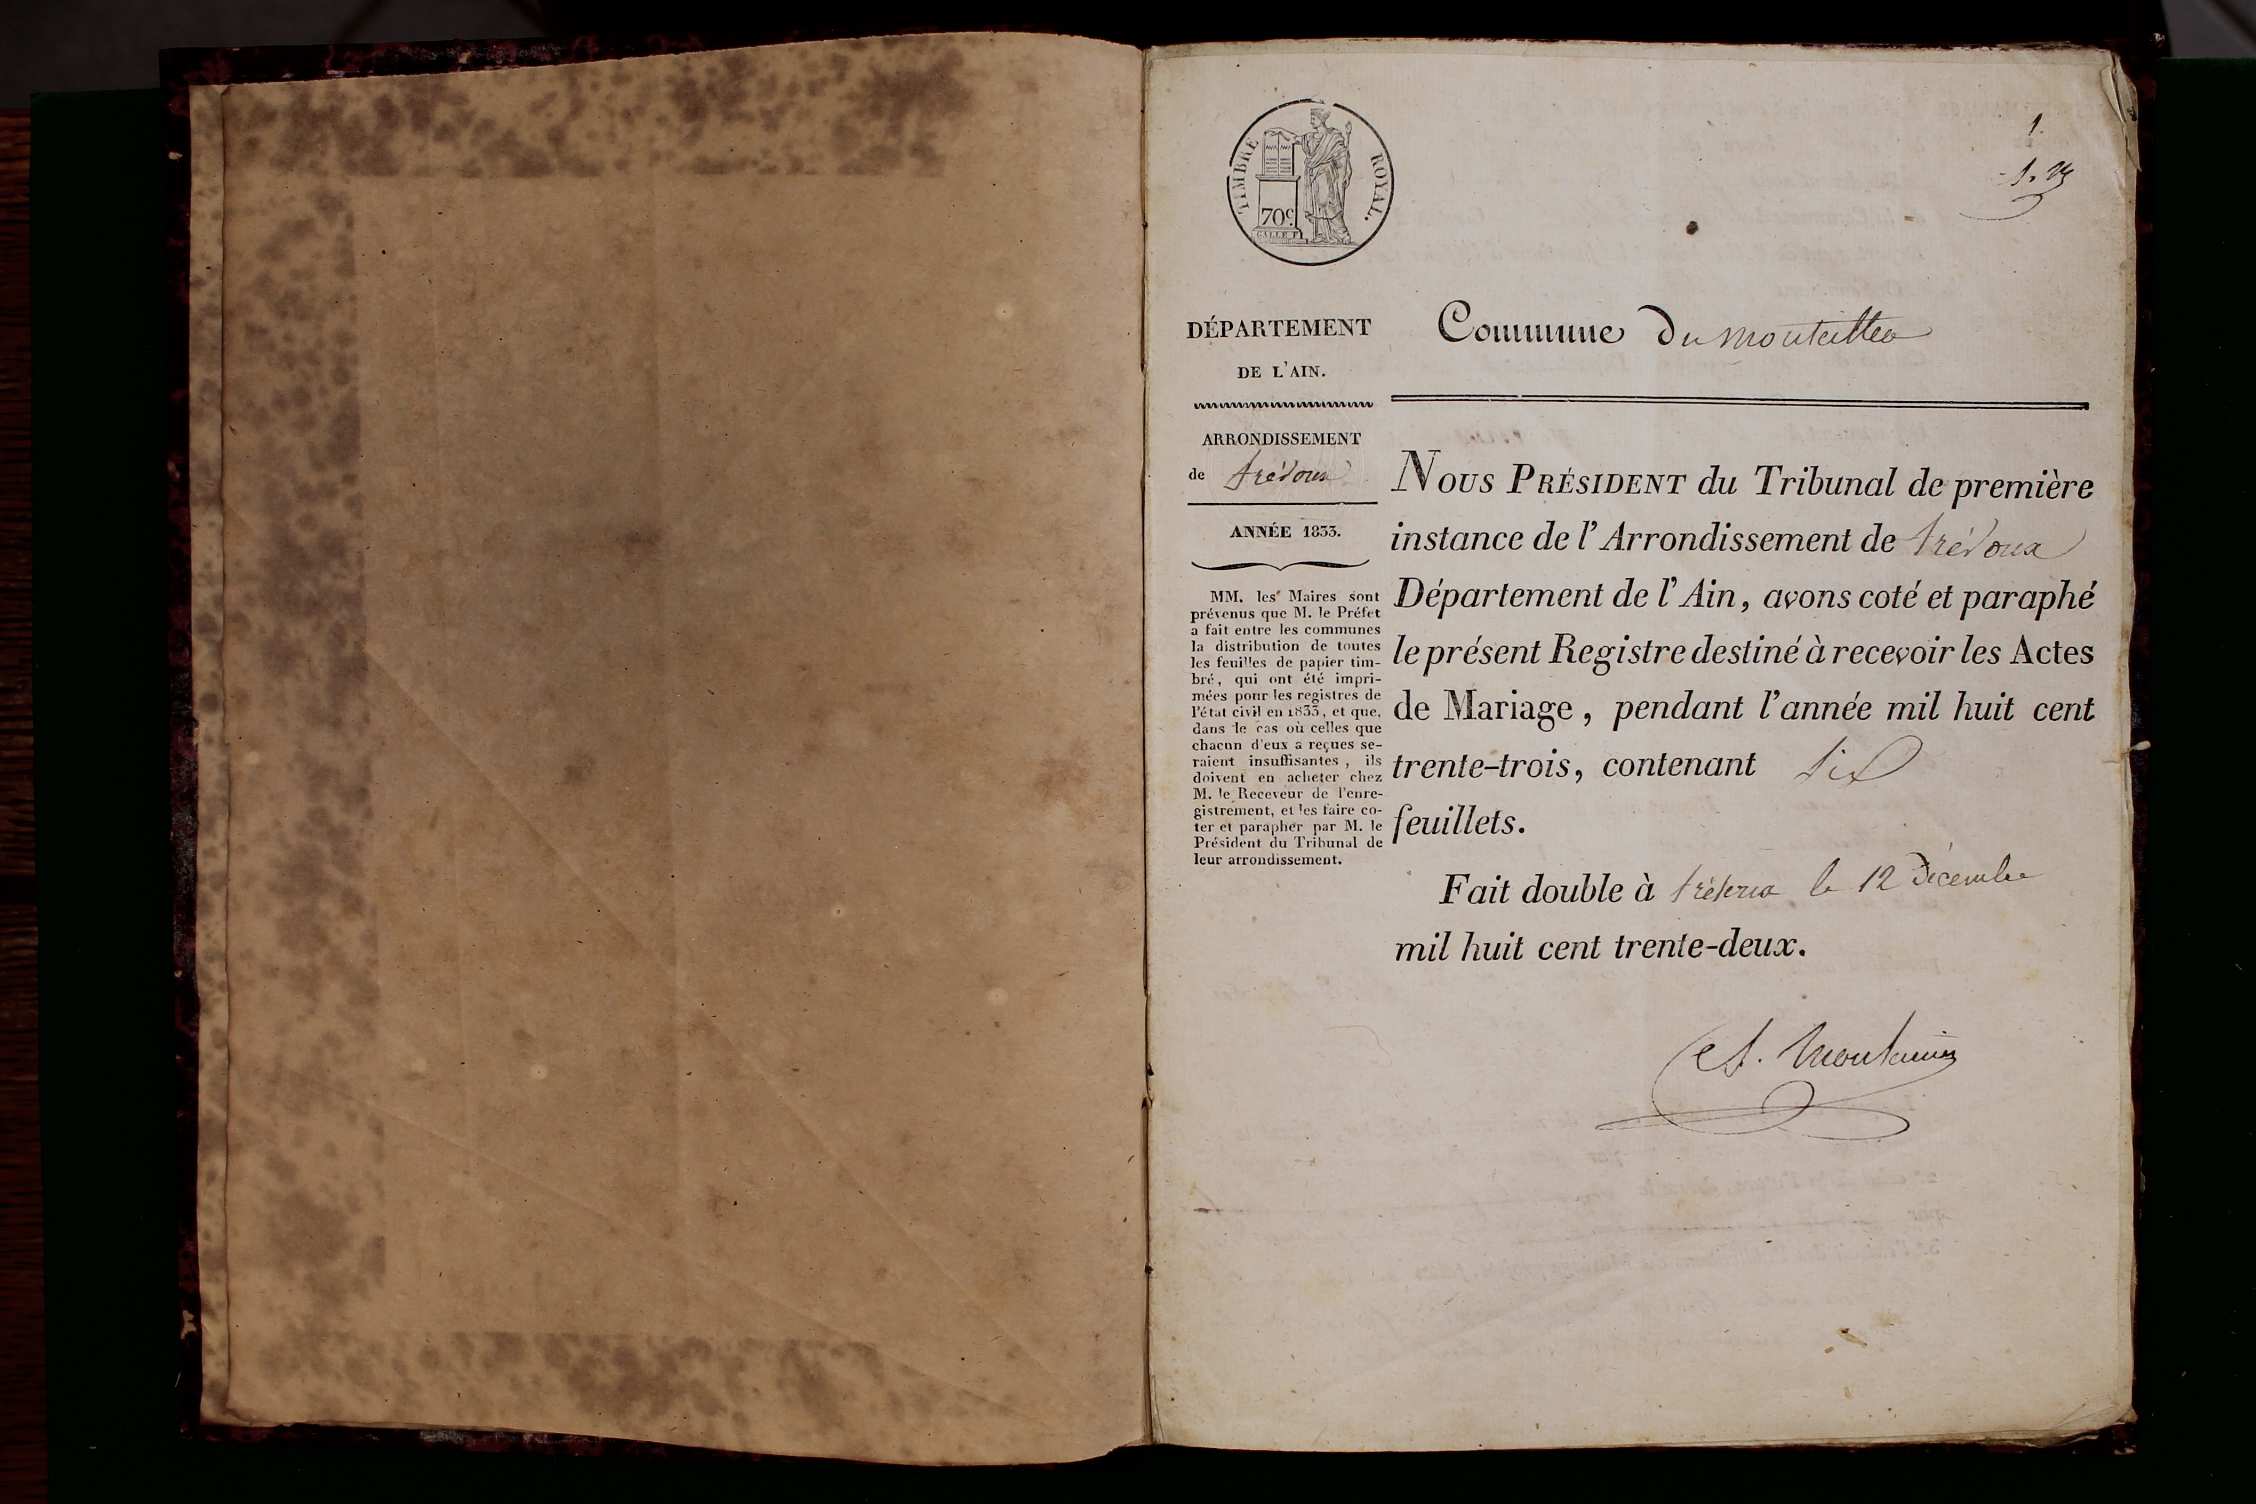 1.
TIMBRE ROYAL.
70c.
GALLE F.
DÉPARTEMENT
DE L'AIN.
ARRONDISSEMENT
de trévoux
ANNÉE 1833.
MM. les Maires sont
prévenus que M. le Préfet
a fait entre les communes
la distribution de toutes
les feuilles de papier tim-
bré, qui ont été impri-
mées pour les registres de
l'état civil en 1833, et que,
dans le cas où celles que
chacun d'eux a reçues se-
raient insuffisantes, ils
doivent en acheter chez
M. le Receveur de l'enre-
gistrement, et les faire co-
ter et parapher par M. le
Président du Tribunal de
leur arrondissement.
Commune du montellier
NOUS PRÉSIDENT du Tribunal de première
instance de l'Arrondissement de trévoux
Département de l'Ain, avons coté et paraphé
le présent Registre destiné à recevoir les Actes
de Mariage, pendant l'année mil huit cent
trente-trois, contenant six
feuillets.
Fait double à trévoux le 12 Décembre
mil huit cent trente-deux.